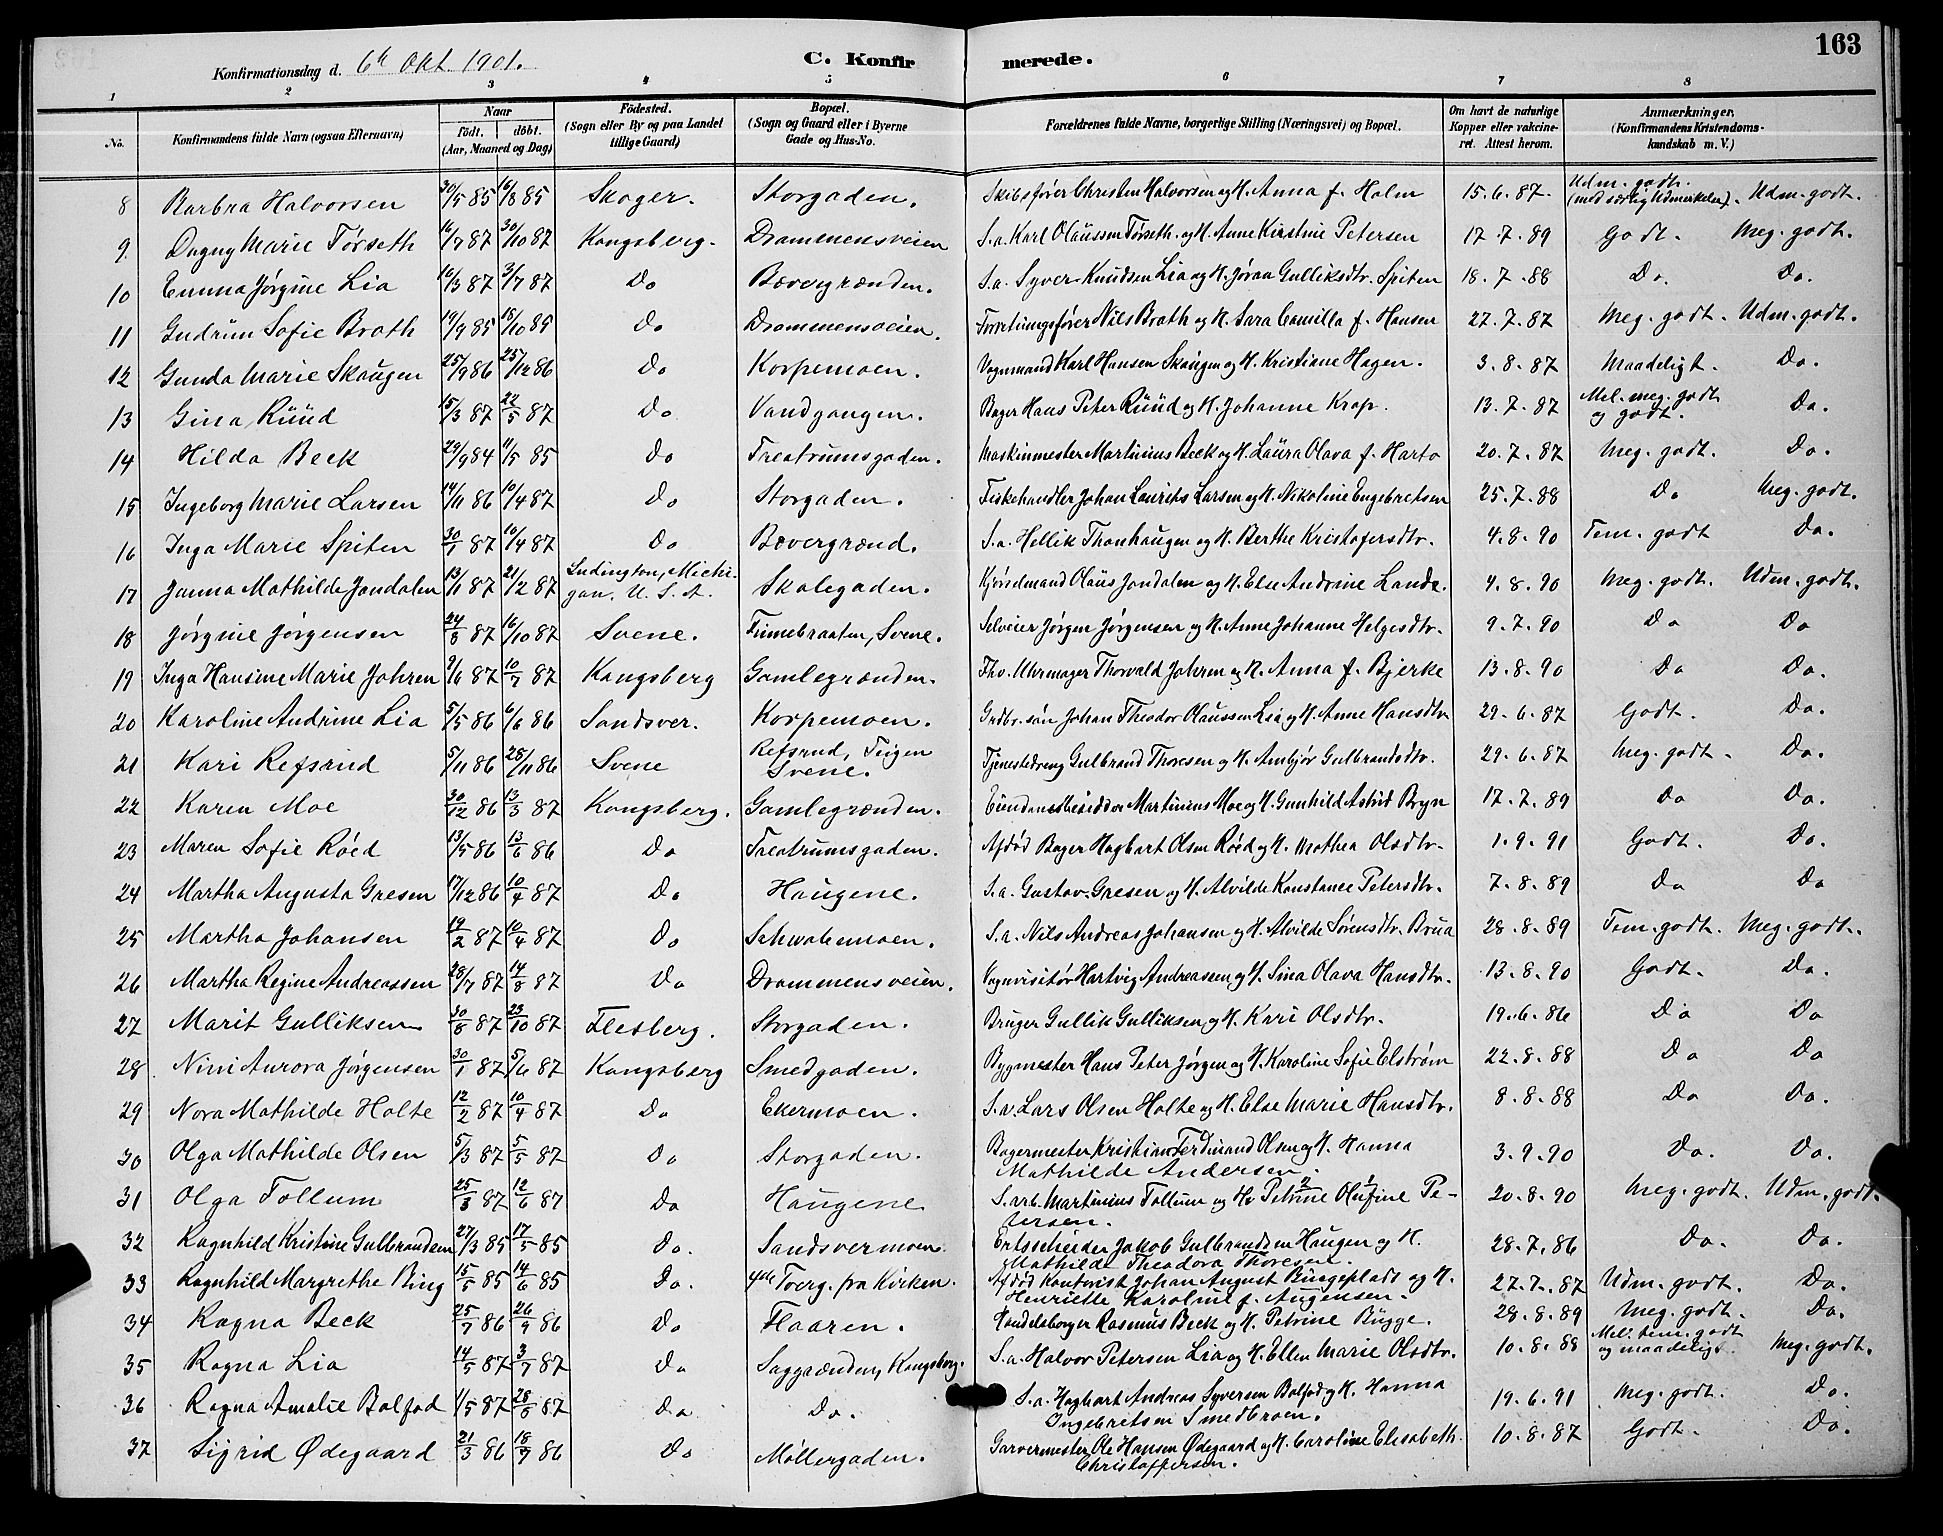 163
Konfirmationsdag d. 6te Okt. 1901.
C. Konfirmerede.
1 2 3 4 5 6 7 8
No. Konfirmandens fulde Navn (ogsaa Efternavn) Naar födt. döbt. (Aar, Maaned og Dag) Födested. (Sogn eller By og paa Landet tillige Gaard) Bopæl. (Sogn og Gaard eller i Byerne Gade og Hus-No. Forældrenes fulde Navne, borgerlige Stilling (Næringsvei) og Bopæl. Om havt de naturlige Kopper eller vakcineret. Attest herom. Anmærkninger. (Konfirmandens Kristendomskundskab m. V.)
8 Barbra Halvorsen 30/5 85 16/8 85 Skoger. Storgaden. Skibsfører Christen Halvorsen og H. Anna f. Holm 15.6.87. Udm. godt. (med særlig Udmerkelse). Udm. godt.
9. Dagny Marie Tørseth 16/7 87 30/10 87 Kongsberg. Drammensveien S.a. Karl Olaussen Tørseth og H. Anne Kirstine Petersen 17.7.89 Godt. Meg. godt.
10 Emma Jørgine Lia 16/3 87 3/7 87 Do Bævergrænden. S.a. Syver Knudsen Lia og H. Jøran Gulliksdtr. Spiten 18.7.88 Do. Do.
11 Gudrun Sofie Brath 19/9 85 18/10 85 Do Drammensveien. Forretningsfører Nils Brath og H. Sara Camilla f. Hansen 27.7.87 Meg. godt. Udm. godt.
12 Gunda Marie Skaugen 25/9 86 25/12 86 Do Korpemoen. Vognmand Karl Hansen Skaugen og H. Kristiane Hagen. 3.8.87 Maadeligt. Do.
13 Gina Ruud 15/3 87 22/5 87 Do Vandgangen. Bager Hans Peter Ruud og H. Johanne Krap. 13.7.87 Mel. meg. godt og godt. Do.
14 Hilda Beck 29/9 84 11/5 85 Do Treatrumsgaden. Maskinmester Martinius Beck og H. Laura Olava f. Harto 20.7.87 Meg. godt. Do.
15 Ingeborg Marie Larsen 14/11 86 10/4 87 Do Storgaden. Fiskehandler Johan Laurits Larsen og H. Nikoline Engebretsen 25.7.88 Do Meg. godt.
16 Inga Marie Spiten 30/1 87 10/4 87 Do Bævergrænd. S.a. Hellik Thonhaugen og H. Berthe Kristofersdtr. 4.8.90 Tem. godt Do.
17 Janna Mathilde Jondalen 13/1 87 21/2 87 Ludington, Michigan. U.S.A. Skolegaden. Kjøremand Olaus Jondalen og H. Else Andrine Lande. 4.8.90 Meg. godt. Udm. godt.
18 Jørgine Jørgensen 24/8 87 16/10 87 Svene. Finnebraaten, Svene. Selveier Jørgen Jørgensen og H. Anne Johanne Helgesdtr. 9.7.90 Do Do
19 Inga Hansine Marie Johren 9/6 87 10/7 87 Kongsberg Gamlegrænden. Fhv. Uhrmager Thorvald Johren og H. Anna f. Bjerke 13.8.90 Do Do.
20 Karoline Andrine Lia 5/5 86 6/6 86 Sandsver. Korpemoen. Grdbr.søn Johan Theodor Olaussen Lia og H. Anne Hansdtr 29.6.87 Godt. Do.
21 Kari Refsrud 5/11 86 28/11 86 Svene Refsrud, Teigen Svene. Tjenestedreng Gulbrand Thoresen og H. Ambjør Gulbrandsdtr. 29.6.87 Meg. godt. Do.
22 Karen Moe 30/12 86 13/3 87 Kongsberg. Gamlegrænden. Eiendomsbesidder Martinius Moe og H. Gunhild Astrid Bryn 17.7.89 Do Do.
23 Maren Sofie Røed 13/5 86 13/6 86 Do Treatrumsgaden. Afdød Bager Hagbart Olsen Røed og H. Mathea Olsdtr. 1.9.91 Godt. Do.
24 Martha Augusta Gresen 17/12 86 10/4 87 Do Haugene. S.a. Gustav Gresen og H. Alvilde Konstance Petersdtr. 7.8.89 Do Do
25 Martha Johansen 19/2 87 10/4 87 Do Schwabemoen. S.a. Nils Andreas Johansen og H. Alvilde Sørensdtr. Brua 28.8.89 Tem. godt. Meg. godt.
26 Martha Regine Andreassen 28/7 87 14/8 87 Do Drammensveien. Vognvisitør Hartvig Andreassen og H. Sina Olava Hansdtr. 13.8.90 Godt. Do.
27 Marit Gulliksen 30/8 87 23/10 87 Flesberg. Storgaden. Bruger Gullik Gulliksen og H. Kari Olsdtr. 19.6.86 Do Do
28 Nini Aurora Jørgensen 30/1 87 5/6 87 Kongsberg Smedgaden. Bygmester Hans Peter Jørgen og H. Karoline Sofie Elstrøm 22.8.88 Do Do
29 Nora Mathilde Holte 12/2 87 10/4 87 Do Ekermoen. S.a. Lars Olsen Holte og H. Else Marie Hansdtr. 8.8.88 Do Do.
30 Olga Mathilde Olsen 5/3 87 5/5 87 Do Storgaden. Bagermester Kristian Ferdinand Olsen og H. Hanna Mathilde Andersen. 3.9.90 Do. Do.
31 Olga Tollum 25/3 87 12/6 87 Do Haugene S.arb. Martinius Tollum og H. Petrine Olufine Petersen. 20.8.90 Meg. godt. Udm. godt.
32 Ragnhild Kristine Gulbrandsen 27/3 85 17/5 85 Do. Sandsvermoen. Ertsscheider Jakob Gulbrandsen Haugen og H. Mathilde Theodora Thoresen. 28.7.86 Do. Do.
33 Ragnhild Margrethe Bing 15/5 85 14/6 85 Do. 4de Tverg. fra Kirken. Afdød Kontorist Johan August Bingeplads og H. Henriette Karoline f. Augensen. 27.7.87 Udm. godt. Do.
34 Ragna Beck 25/7 86 26/9 86 Do Flaaren. Handelsborger Rasmus Beck og H. Petrine Bügge. 28.8.89 Meg. godt. Do.
35 Ragna Lia 14/5 87 3/7 87 Do Saggrænden, Kongsberg. S.a. Halvor Petersen Lia og H. Ellen Marie Olsdtr. 10.8.88 Mel. tem. godt og maadeligt. Meg. godt.
36 Ragna Amalie Bolfod 1/5 87 28/8 87 Do Do. S.a. Hagbart Andreas Syversen Bolfod og H. Hanna Ingebretsen Smedbroen. 19.6.91 Meg. godt. Do.
37 Sigrid Ødegaard 21/3 86 18/7 86 Do Møllergaden. Garvermester Ole Hansen Ødegaard og H. Caroline Elisabeth Christoffersen. 10.8.87 Godt. Do.